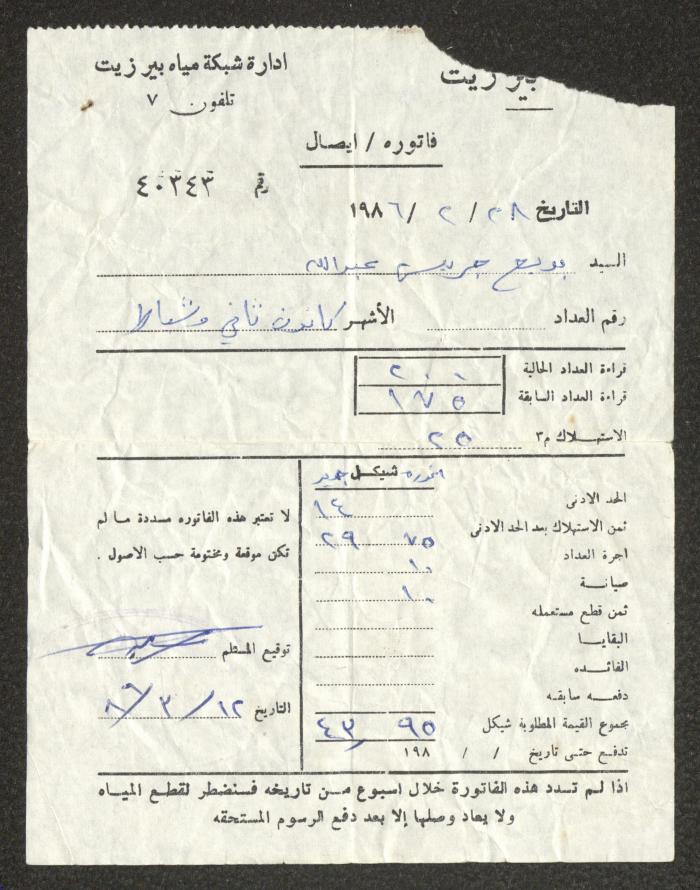 بير زيت
ادارة شبكة مياه بير زيت
تلفون ٧
فاتوره / ايصال
رقم ٤٠٣٤٣
التاريخ ٢٨ / ٢ / ١٩٨٦
السيد جريس عبدالله
رقم العداد الأشهر كانون ثاني وشباط
قراءة العداد الحالية ٢٠٠
قراءة العداد السابقة ١٧٥
الاستهلاك م٣ ٢٥
اغوره شيكل جديد
الحد الادنى ١٤
ثمن الاستهلاك بعد الحد الادنى ٧٥ ٢٩
اجرة العداد ١٠
صيانة ١٠
ثمن قطع مستعمله
البقايا
الفائده
دفعه سابقه
مجموع القيمة المطلوبة شيكل ٩٥ ٤٣
تدفع حتى تاريخ / / ١٩٨
لا تعتبر هذه الفاتوره مسددة ما لم
تكن موقعة ومختومة حسب الاصول .
توقيع المستلم
التاريخ ١٢ / ٣ / ٨٦
اذا لم تسدد هذه الفاتورة خلال اسبوع من تاريخه فسنضطر لقطع المياه
ولا يعاد وصلها إلا بعد دفع الرسوم المستحقه